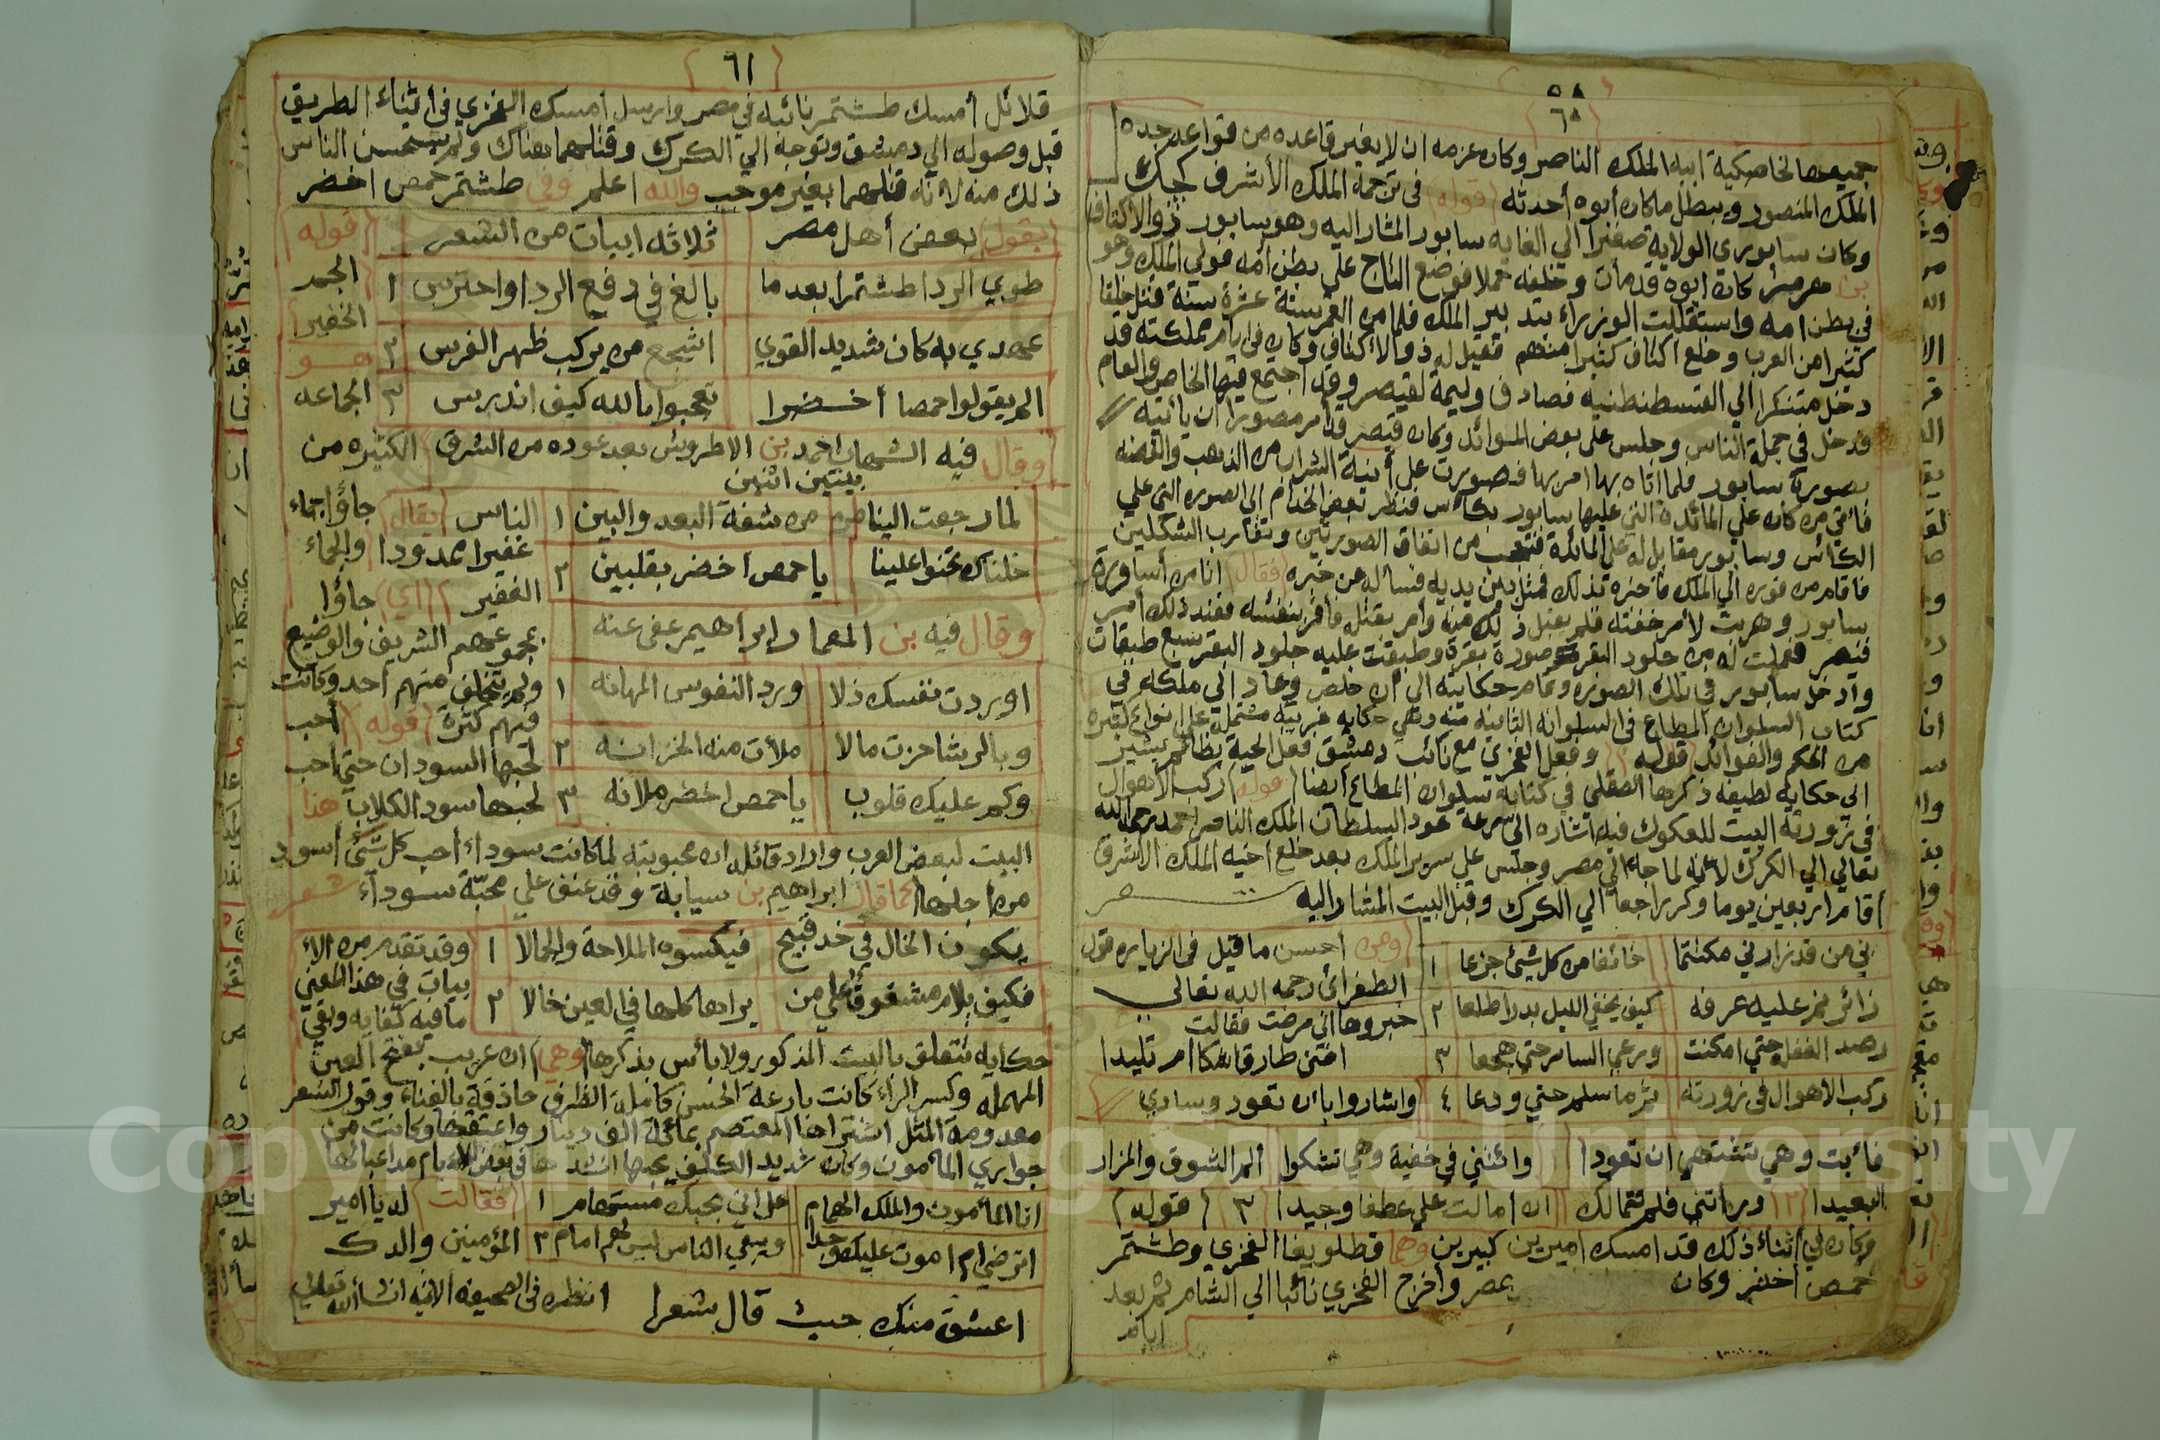 ٥٨
٦٨
جميعها لخاصكية ابيه الملك الناصر وكان عزمه ان لا يغير قاعده من قواعد جده
الملك المنصور ويبطل ما كان أبوه أحدثه (قوله) في ترجمة الملك الأشرف كجك
وكان سابوري الولاية صغيرا الي الغايه سابور المشار اليه وهو سابور ذوالاكتاف
بن هرمز كان ابوه قد مات وخلفه حملا فوضع التاج على بطن أمه فولي الملك وهو
في بطن امه واستقلت الوزراء بتدبير الملك فلما من العمر ستة عشرة سنة قتل خلقا
كثيرا من العرب وخلع اكتاف كثيرا منهم فقيل له ذو الاكتاف وكان في ايام مملكته قد
دخل متنكرا الي القسطنطنيه فصادف وليمة لقيصر وقد اجتمع فيها الخاص والعام
فدخل في جملة الناس وجلس على بعض الموائد وكان قيصر قد أمر مصورا ان يأتيه
بصورة سابور فلما اتاه بها امر بها فصورت على أبنية الشراب من الذهب والفضه
فأتي من كان علي المائدة التي عليها سابور بكأس فنظر بعض الخدام الي الصوره التي علي
الكأس وسابور مقابل له على المائدة فتعجب من اتفاق الصورتين وتقارب الشكلين
فاقام من فوره الي الملك فاخبره بذلك فمثل بين يديه فساله عن خبره (فقال) انا من أساورة
سابور وهربت لأمر خفته فلم يقبل ذلك منه وأمر بقتله فأقر بنفسه فعند ذلك أمر
قيصر فعملت له من جلود البقر صورة بقرة وطبقت عليه جلود البقر سبع طبقات
وادخل سابور في تلك الصوره وتمام حكايته الي أن خلص وعاد الي ملكه في
كتاب السلوان المطاع في السلوانه الثانيه منه وهي حكايه غريبه مشتملة على انواع كثيره
من الحكم والفوائد (قوله) وفعل الفخري مع نائب دمشق فعل الحية بظالم يشير
الى حكايه لطيفه ذكرها الصقلي في كتابه سلوان المطاع أيضا (قوله) ركب الأهوال
في زورته البيت للعكوك فيه اشاره الى سرعة عود السلطان الملك الناصر احمد رحمه الله
تعالي الي الكرك لأنه لما جاء الي مصر وجلس على سرير الملك بعد خلع أخيه الملك الأشرف
أقام اربعين يوما وكر راجعا الي الكرك وقبل البيت المشار اليه
بي من قد زارني مكتتما خائفا من كل شيئ جزعا ١ (ومن) أحسن ما قيل في الزياره قول
زائر نم عليه عرفه كيف يخفي الليل بدرا طلعا ٢ الطغرائ رحمه الله تعالي
رصد الغفلة حتي امكنت ورعي السامر حتي هجعا ٣ خبروها اني مرضت فقالت
اضني طارقا شكا ام تليدا
ركب الاهوال في زورته ثم ما سلم حتي ودعا ٤ واشاروا بان تعود وسادي
فأبت وهي تشتهي ان تعودا وائتني في خفية وهي تشكوا ألم الشوق والمزار
البعيدا ٢ ورأتني فلم تتمالك ان امالت علي عطفا وجيدا ٣ (قوله)
وكان في أثناء ذلك قد امسك اميرين كبيرين وهما قطلوبغا الفخري وطشتمر
حمص أخضر وكان بمصر واخرج الفخري نائبا الي الشام ثم بعد
ايام
٦١
قلائل أمسك طشتمر نائبه في مصر وارسل امسك الفخري في أثناء الطريق
قبل وصوله الي دمشق وتوجه الي الكرك وقتلهما هناك ولم يستحسن الناس
ذلك منه لانه قتلهما بغير موجب والله اعلم وفي طشتمر حمص اخضر
(يقول) بعض أهل مصر ثلاثه ابيات من الشعر (قوله)
طوي الردا طشتمرا بعد ما بالغ في دفع الردا واحترس ١ الجم
الغفير
عهدي به كان شديد القوي اشجع من يركب ظهر الفرس ٢ هو
الم يقولوا حمصا أخضرا تعجبوا بالله كيف اندرس ٣ الجماعه
وقال فيه الشهاب احمد بن الاطروش بعد عوده من الشرق الكثيره من
بيتين اثنين
لما رجعت الينا من شقة البعد والبين ١ الناس (يقال) جاؤا جماء
خلناك تحنوا علينا يا حمص أخضر بقلبين ٢ غفيرا ممدودا والجماء
الغفير (اي) جاؤا
وقال فيه بن المعمار ابراهيم عفى عنه بمجموعهم الشريف والوضيع
اوردت نفسك ذلا ورد النفوس المهانه ١ ولم يتخلف منهم أحد وكانت
فيهم كثرة (قوله) أحب
وبالرشا حزت مالا ملأت منه الخزانه ٢ لحبها السودان حتي أحب
وكم عليك قلوب يا حمص اخضر ملانه ٣ لحبها سود الكلاب هذا
البيت لبعض العرب واراد قائله ان محبوبته لما كانت سوداء أحب كل شئ أسود
من أجلها كما قال ابراهيم بن سيابة وقد عنف علي محبّة سوداء شعر
يكون الخال في خد قبيح فيكسوه الملاحة والجمالا ١ وقد تقدم من الأ
بيات في هذا المعني
فكيف يلام مشغوفا على من يراها كلها في العين خالا ٢ ما فيه كفايه وبقي
حكايه تتعلق بالبيت المذكور ولا بأس بذكرها (وهي) ان عريب بفتح العين
المهمله وكسر الراء كانت بارعة الحسن كاملة الظرف حاذقة بالغناء وقول الشعر
معدومة المثل اشتراها المعتصم بمائة الف دينار واعتقها وكانت من
جواري المأمون وكان شديد الكلف بحبها انشدها في بعض الأيام مداعبا لها
انا المأمون والملك الهمام على اني بحبك مستهام ١ (فقالت) له يا امير
اترضي ام اموت عليك وجدا ويبقي الناس ليس لهم امام ٢ المؤمنين والدك
اعشق منك حيث قال شعرا انظره في الصحيفه الاتيه انشا الله تعالي
Copyright © King Saud University